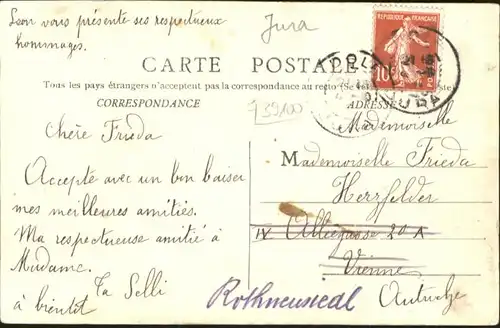 Léon vous présente ses respectueux
hommages.
Jura
RÉPUBLIQUE FRANÇAISE
10
DOLE
JURA
CARTE POSTALE
Tous les pays étrangers n'acceptent pas la correspondance au recto (Se
CORRESPONDANCE
ADRESSE
Chère Frieda
Accepte avec un bon baiser
mes meilleures amitiés.
Ma respectueuse amitié à
Madame.
Ta Selli
à bientôt
Mademoiselle
Mademoiselle Frieda
Herzfelder
IV Alleegasse 20 A
Vienne
Rothneusiedl
Autriche